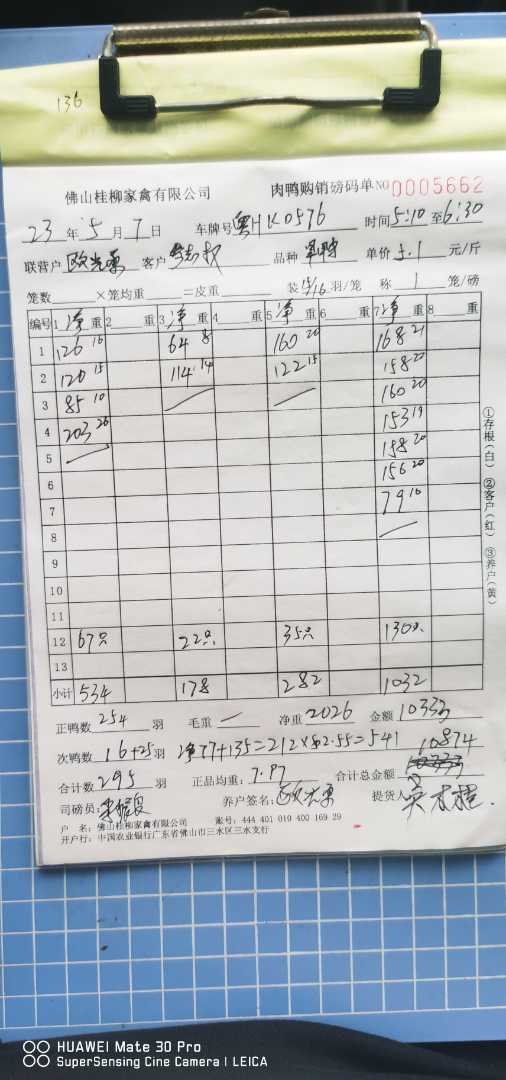 136
佛山桂柳家禽有限公司 肉鸭购销磅码单 NO 0005662
23 年 5 月 7 日 车牌号 粤HK0576 时间 5:10 至 6:30
联营户 客户 品种 单价 5.1 元/斤
笼数 ×笼均重 =皮重 装 15/16 羽/笼 称 1 笼/磅
编号 1 净 重 2 重 3 净 重 4 重 5 净 重 6 重 7 净 重 8 重
1 126 16 64 8 160 20 168 21
2 120 15 114 14 122 15 158 20
3 85 10 160 20
4 203 26 153 19
5 158 20
6 156 20
7 79 10
8
9
10
11
12 67只 22只 35只 130只
13
小计 534 178 282 1032
正鸭数 254 羽 毛重 净重 2026 金额 10333
次鸭数 16+25 羽 净77+135=212×2.55=541 10874
合计数 295 羽 正品均重: 7.97 合计总金额
司磅员: 养户签名: 提货人
户 名: 佛山桂柳家禽有限公司 账号: 444 401 019 400 169 29
开户行: 中国农业银行广东省佛山市三水区三水支行
①存根(白) ②客户(红) ③养户(黄)
HUAWEI Mate 30 Pro
SuperSensing Cine Camera | LEICA